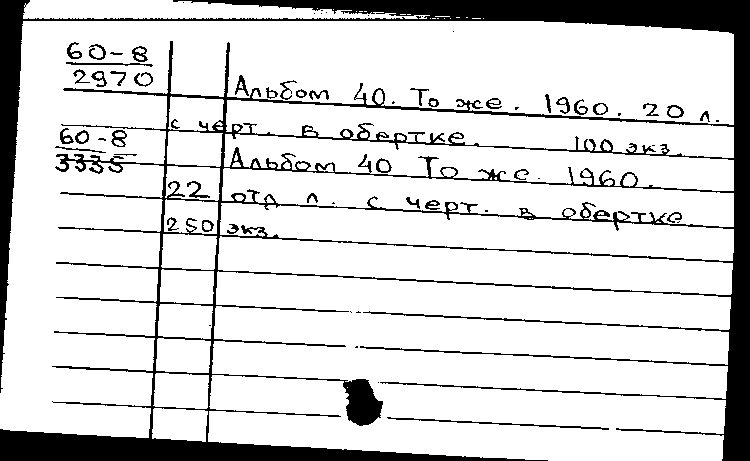 60-8
2970
Альбом 40. То же. 1960. 20 л.
с черт. в обертке. 100 экз.
60-8
3335
Альбом 40 То же. 1960.
22 отд л. с черт. в обертке
250 экз.